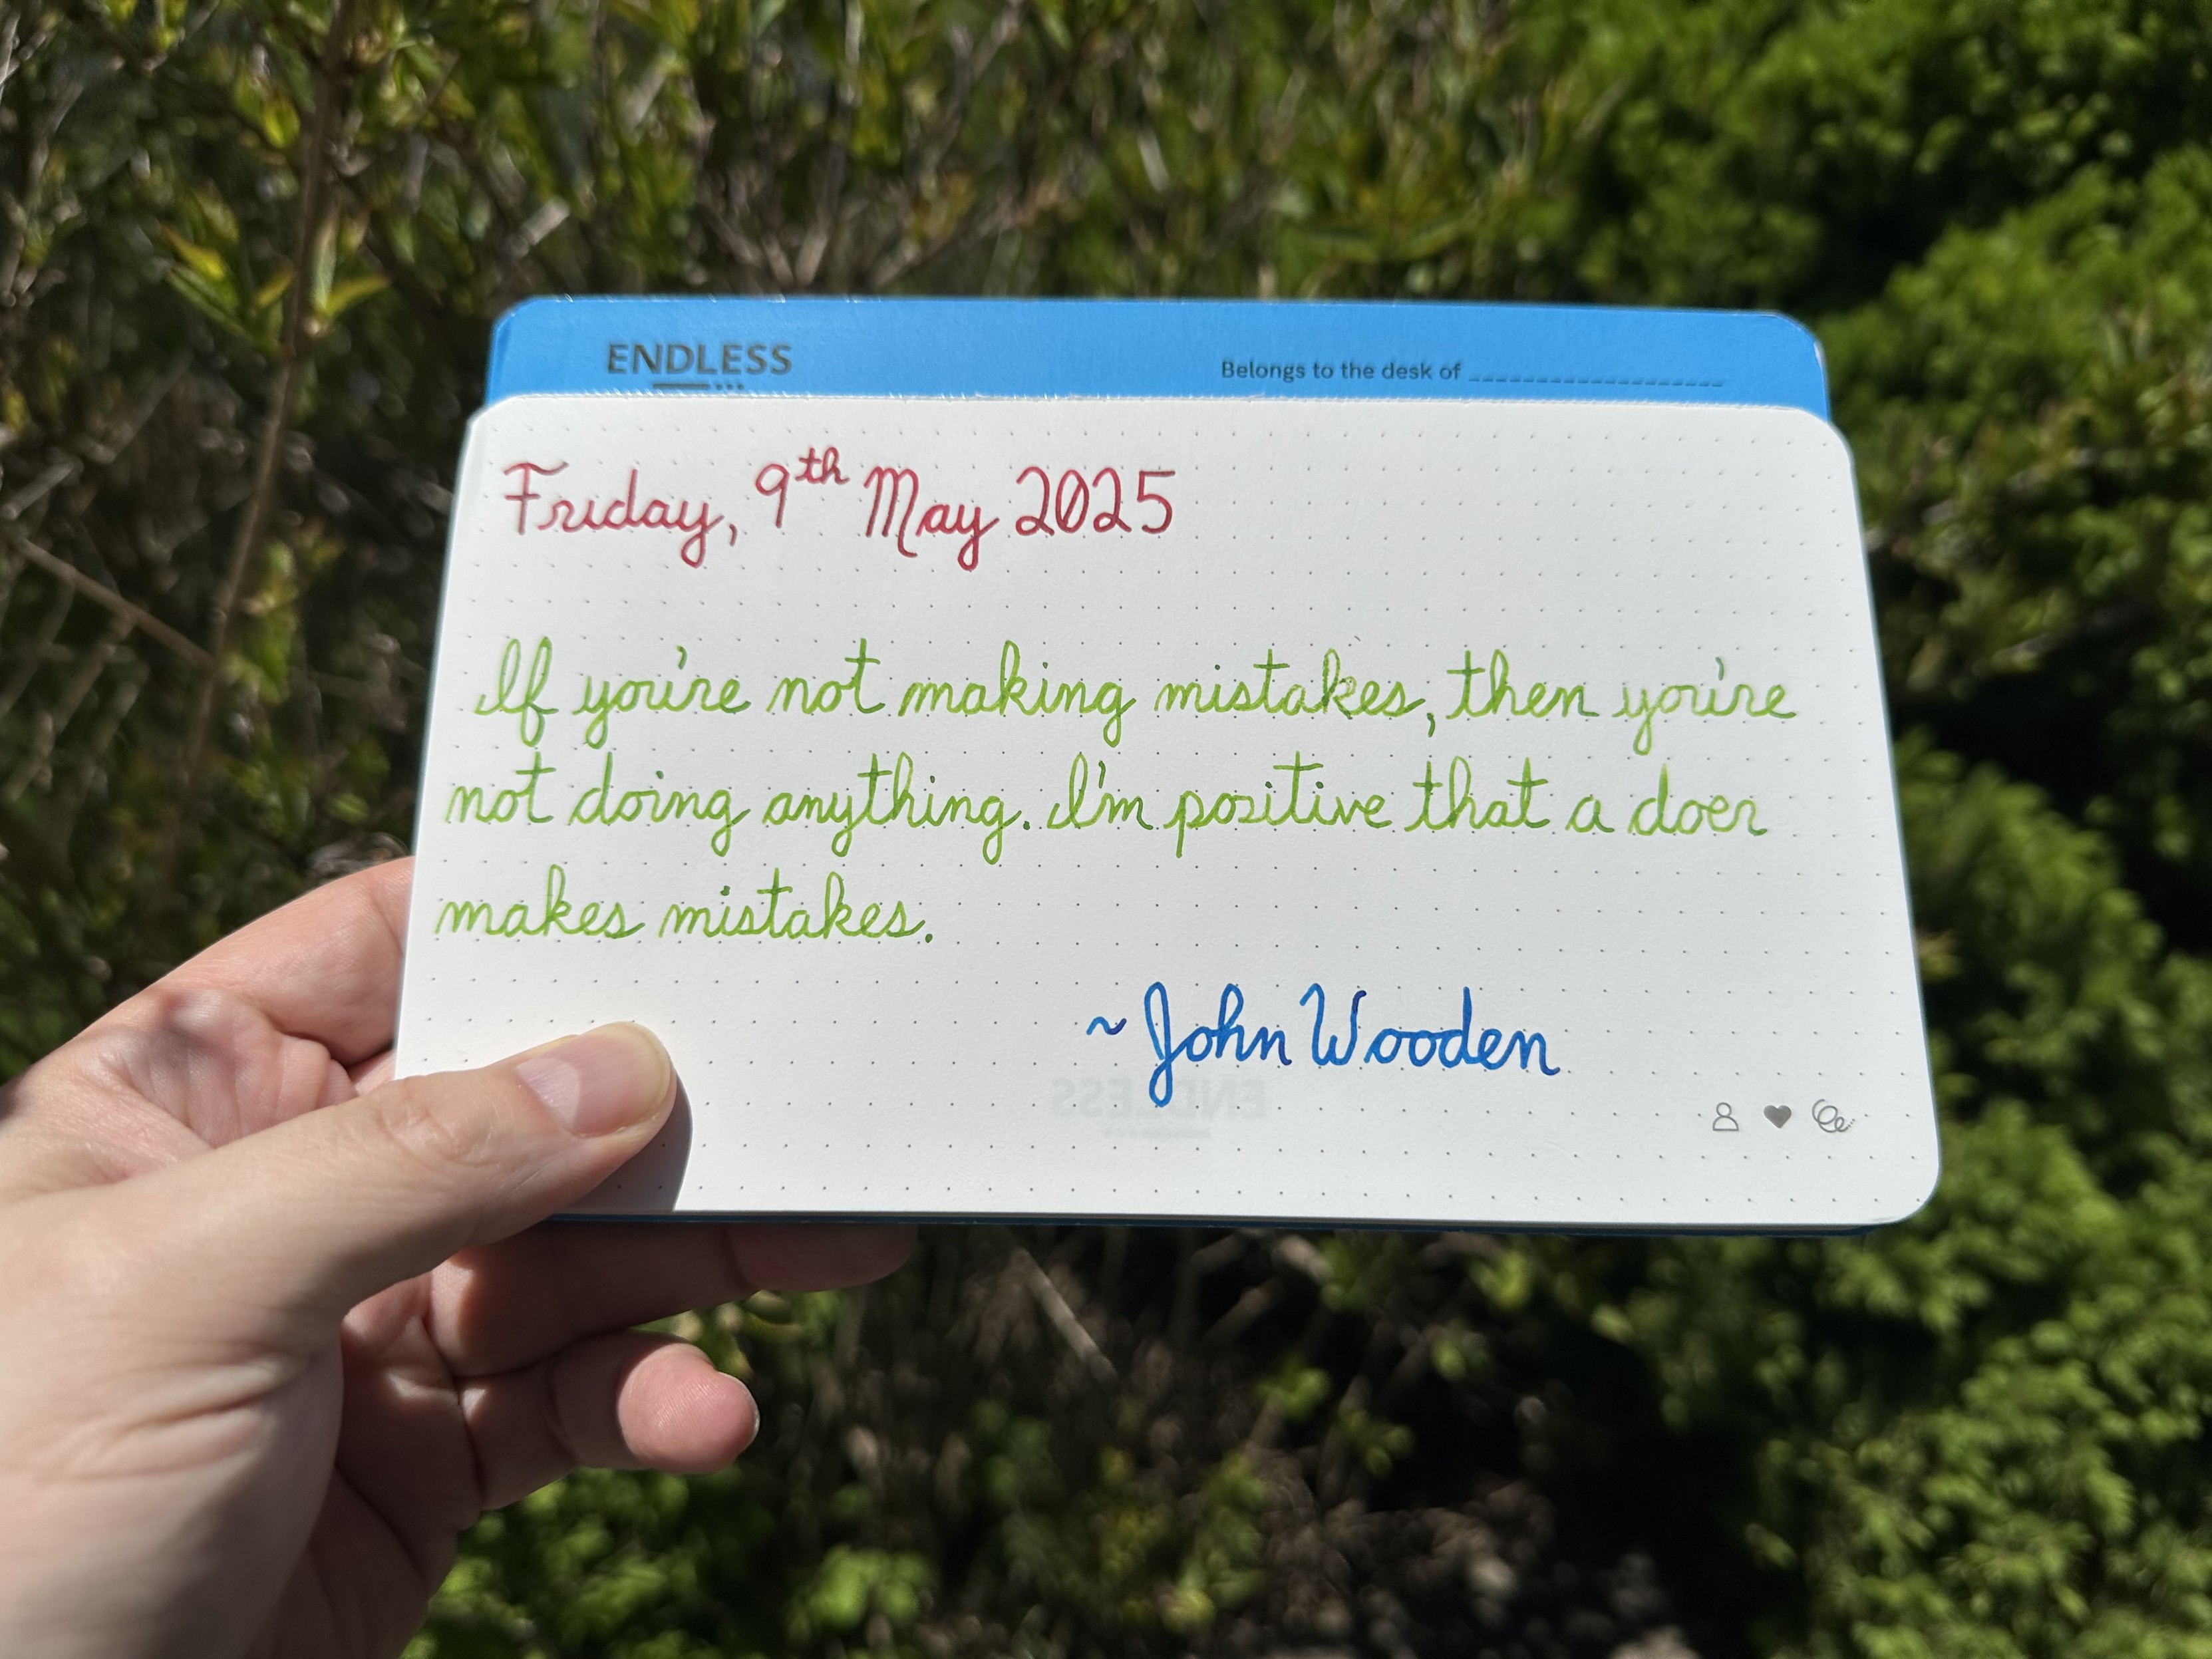 ENDLESS
Belongs to the desk of
Friday, 9th May 2025
If you're not making mistakes, then you're
not doing anything. I'm positive that a doer
makes mistakes.
~John Wooden
ENDLESS